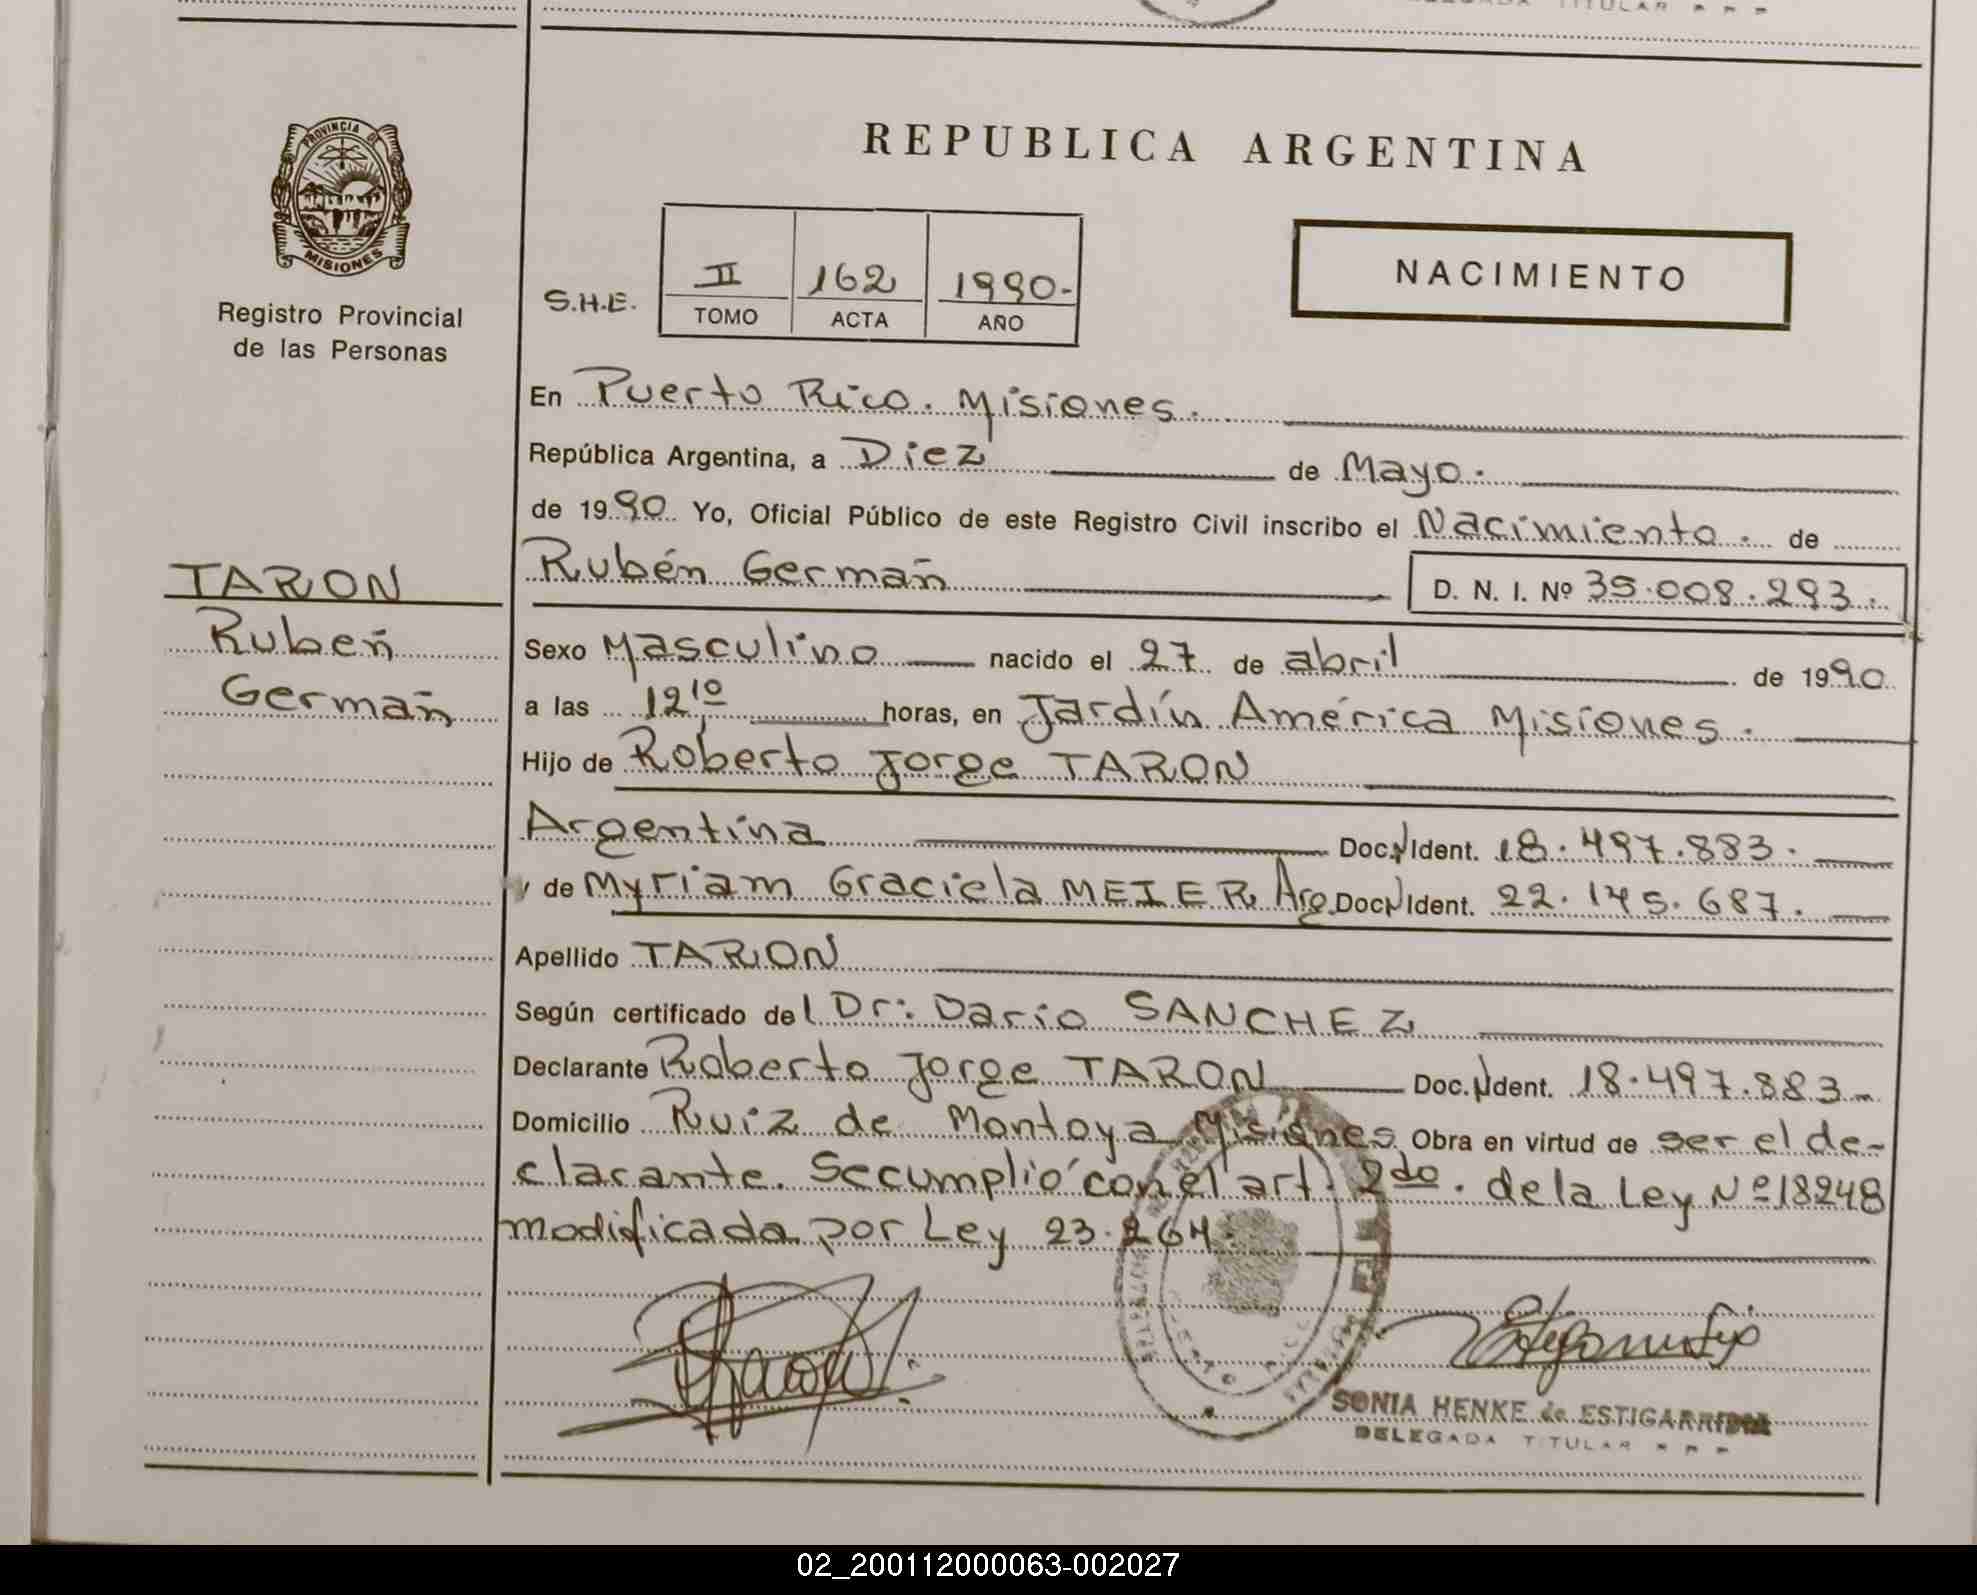 DELEGADA TITULAR
PROVINCIA DE
MISIONES
Registro Provincial
de las Personas
REPUBLICA ARGENTINA
NACIMIENTO
S.H.E.
II 162 1990.-
TOMO ACTA AÑO
En Puerto Rico. Misiones.
República Argentina, a Diez de Mayo.
de 1990 Yo, Oficial Público de este Registro Civil inscribo el Nacimiento. de
Rubén Germán
D. N. I. Nº 35.008.293.
TARON
Rubén
Germán
Sexo Masculino nacido el 27 de abril de 1990
a las 12,10 horas, en Jardín América Misiones.
Hijo de Roberto Jorge TARON
Argentina Doc. N Ident. 18.497.883.
y de Myriam Graciela MEIER Arg. Doc. N Ident. 22.145.687.
Apellido TARON
Según certificado del Dr: Dario SANCHEZ
Declarante Roberto Jorge TARON Doc. N Ident. 18.497.883-
Domicilio Ruiz de Montoya Misiones Obra en virtud de ser el de-
clarante. Se cumplió con el art. 2do. de la Ley Nº 18248
modificada por Ley 23.264.
SONIA HENKE de ESTIGARRIBIA
DELEGADA TITULAR
02_200112000063-002027